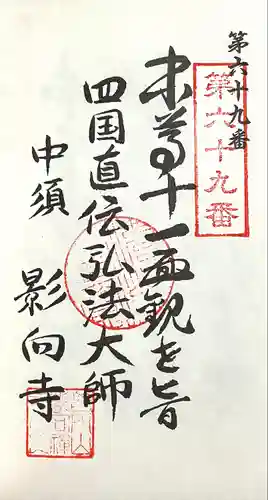 第六十九番
第六十九番
本尊十一面観世音
四国直伝弘法大師
中須 影向寺